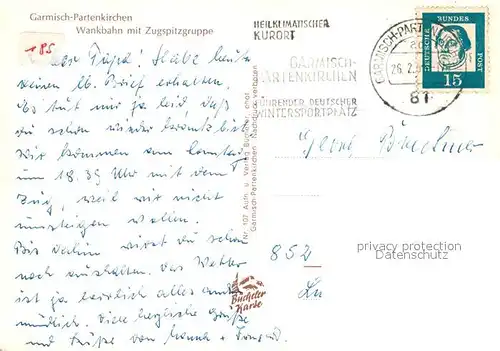 Garmisch-Partenkirchen
Wankbahn mit Zugspitzgruppe
Habe heute
deinen lb. Brief erhalten.
Es tut mir ja leid, daß
du schon wieder krank bist
wir kommen am Samstag
um 18.39 Uhr mit dem
Zug, weil wir nicht
umsteigen wollen.
Bis dahin wirst du schon
noch aushalten. Das Wetter
ist ja herrlich alles andere
mündlich. Viele herzliche Grüße
und Küsse von
HEILKLIMATISCHER
KURORT
GARMISCH-
PARTENKIRCHEN
FÜHRENDER DEUTSCHER
WINTERSPORTPLATZ
GARMISCH-PART
26.2.
81
DEUTSCHE
BUNDES
POST
15
Georg
852
Nr. 107 Aufn. u. Verlag
Nachdruck verboten
Garmisch-Partenkirchen
Bücheler
Karte
privacy protection
Datenschutz